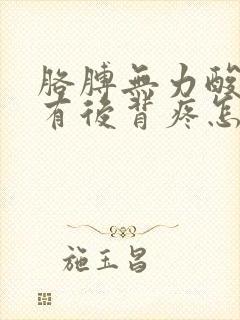 胳膊無力酸
有後背疼怎
施玉昌